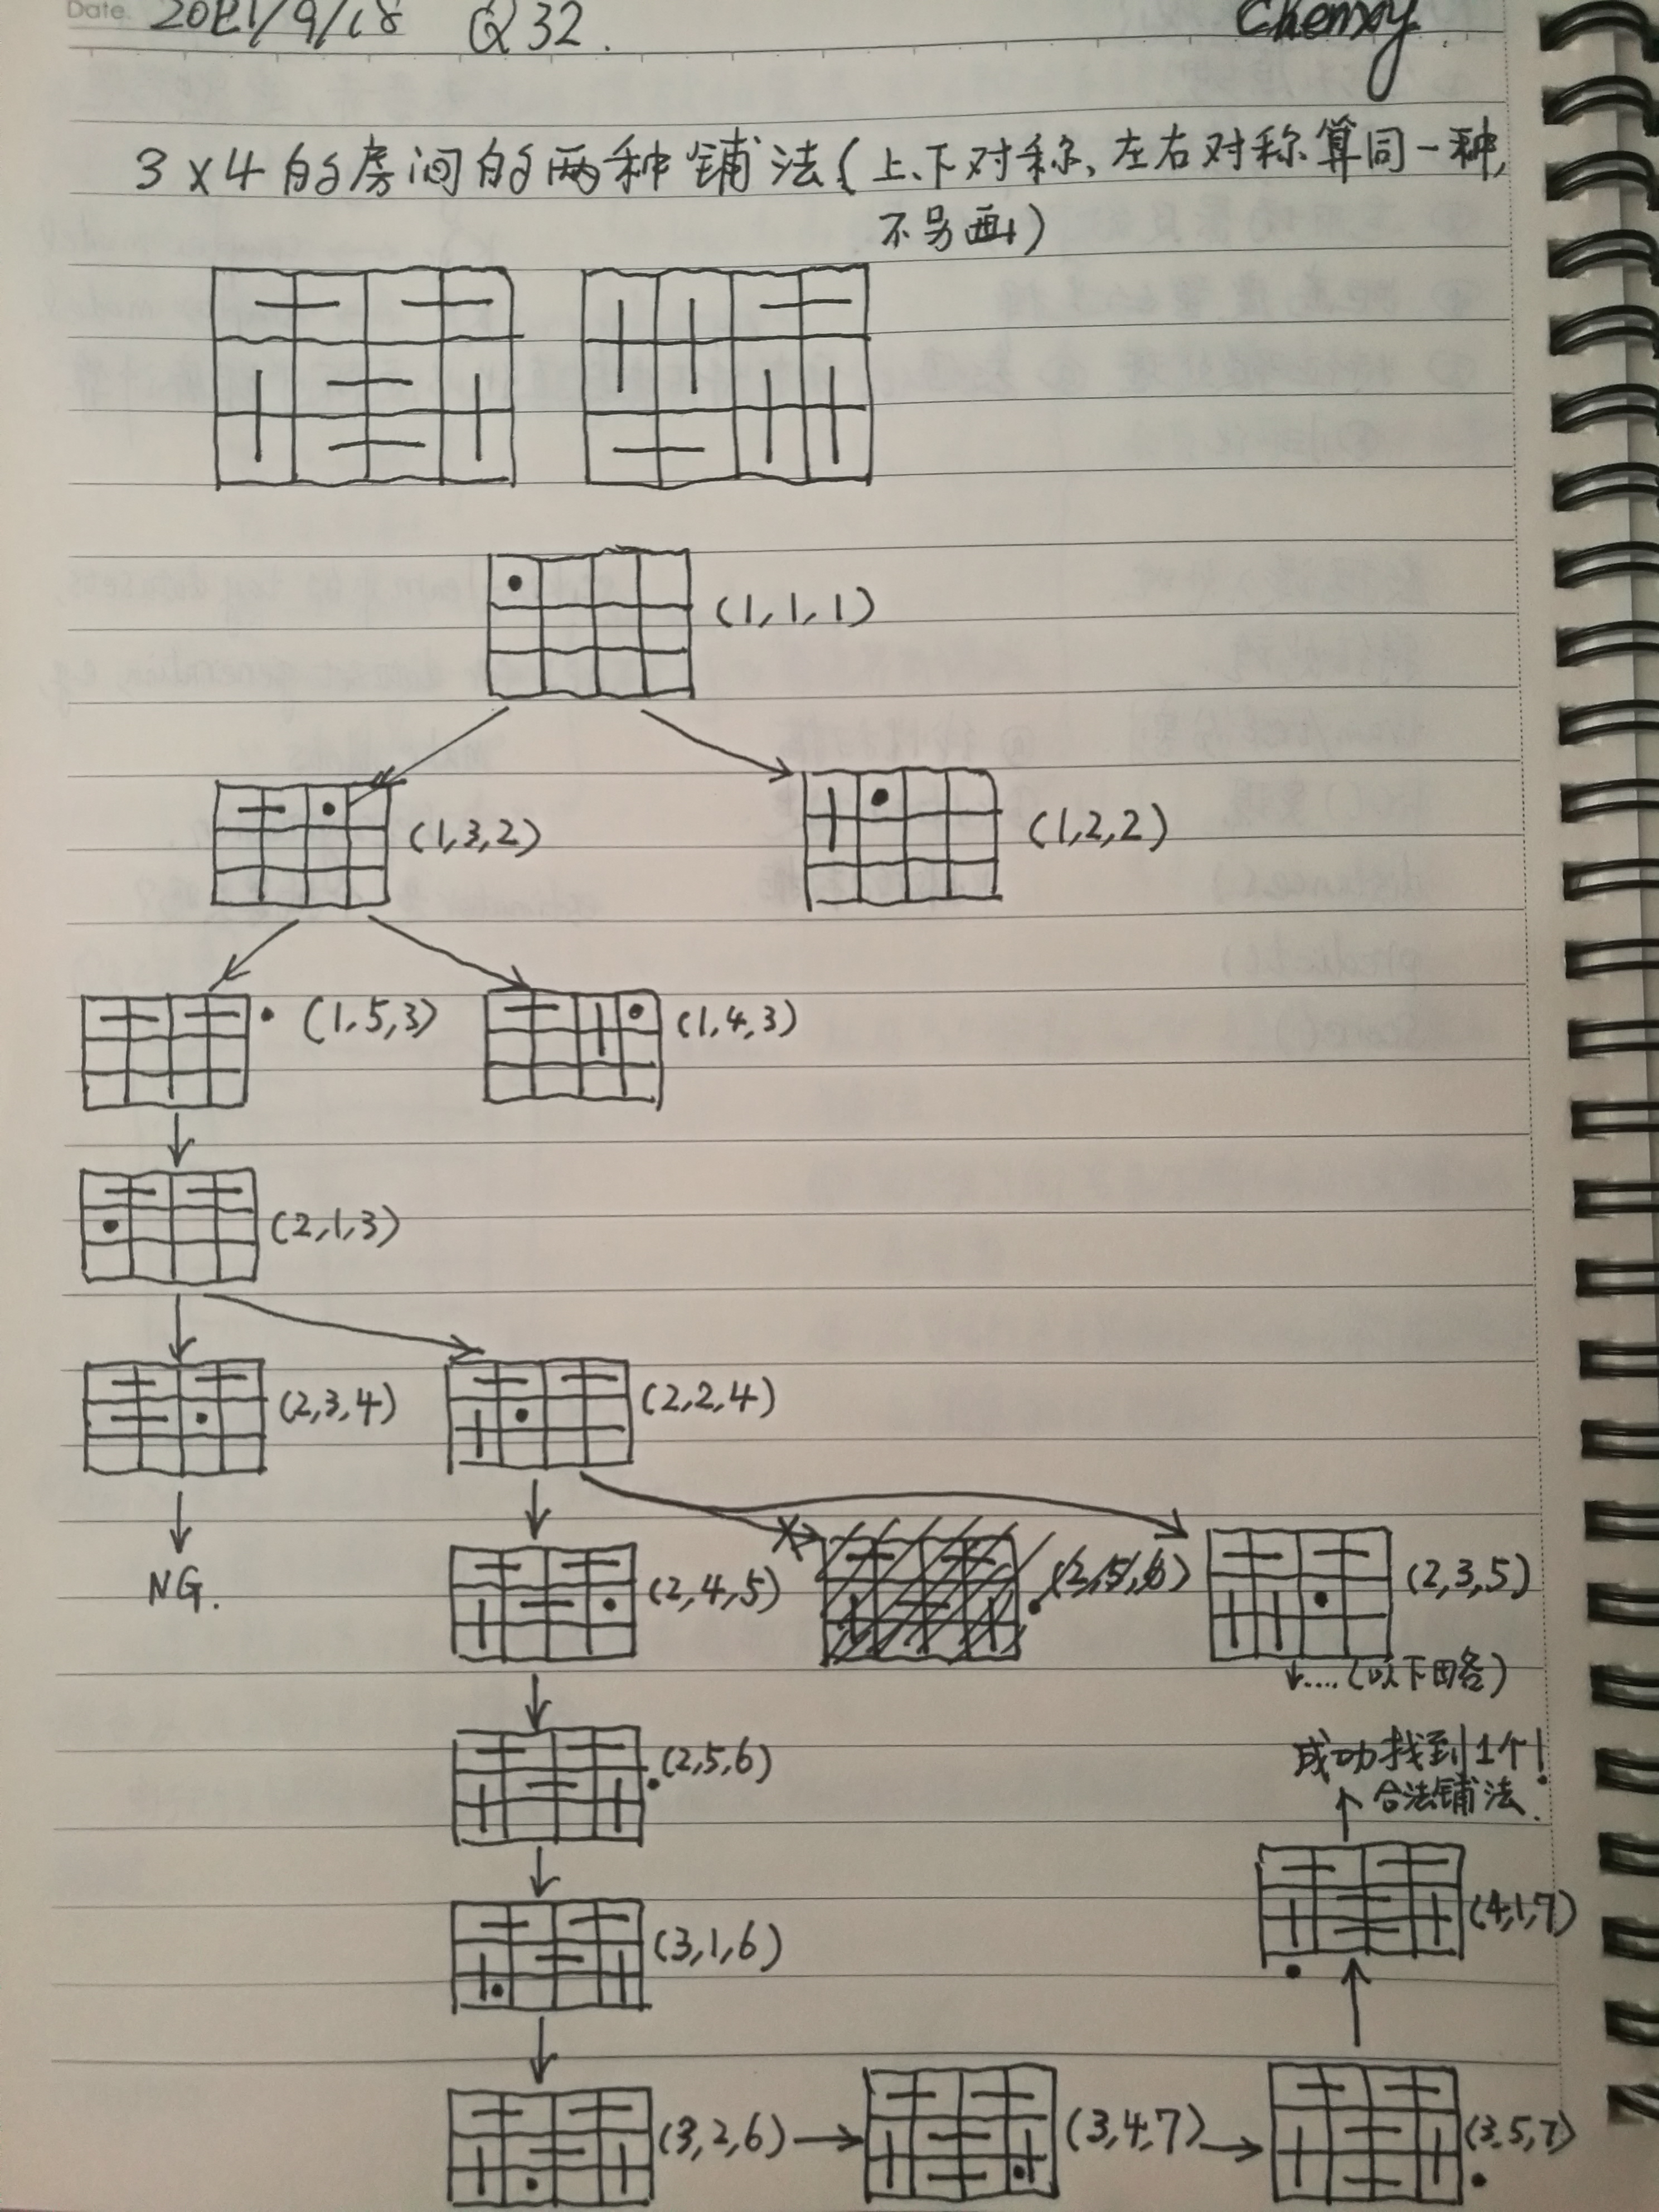 Date. 2021/9/18 Q32. Chenxy
3×4的房间的两种铺法(上、下对称、左右对称算同一种,
不另画)
(1,1,1)
(1,3,2) (1,2,2)
(1,5,3) (1,4,3)
(2,1,3)
(2,3,4) (2,2,4)
NG. (2,4,5) (2,5,6) (2,3,5)
....(以下田各)
(2,5,6) 成功找到1个!
合法铺法.
(3,1,6) (4,1,7)
(3,2,6) (3,4,7) (3,5,7)